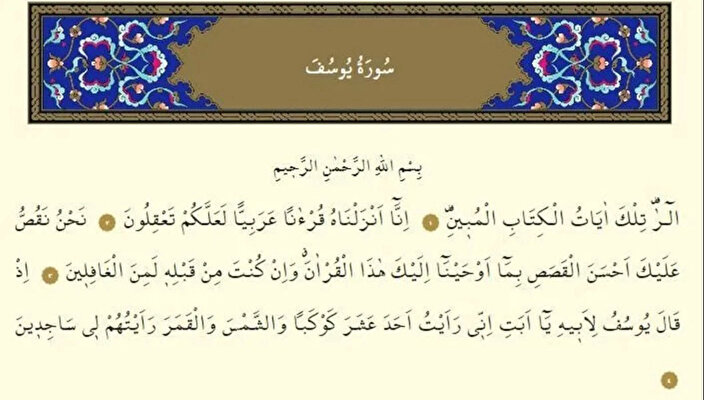 سُورَةُ يُوسُفَ
بِسْمِ اللهِ الرَّحْمٰنِ الرَّحٖيمِ
الٓرٰ۠ تِلْكَ اٰيَاتُ الْكِتَابِ الْمُبٖينِ۠ ١ اِنَّٓا اَنْزَلْنَاهُ قُرْءٰنًا عَرَبِيًّا لَعَلَّكُمْ تَعْقِلُونَ ٢ نَحْنُ نَقُصُّ
عَلَيْكَ اَحْسَنَ الْقَصَصِ بِمَٓا اَوْحَيْنَٓا اِلَيْكَ هٰذَا الْقُرْاٰنَۗ وَاِنْ كُنْتَ مِنْ قَبْلِهٖ لَمِنَ الْغَافِلٖينَ ٣ اِذْ
قَالَ يُوسُفُ لِاَبٖيهِ يَٓا اَبَتِ اِنّٖى رَاَيْتُ اَحَدَ عَشَرَ كَوْكَبًا وَالشَّمْسَ وَالْقَمَرَ رَاَيْتُهُمْ لٖى سَاجِدٖينَ
٤